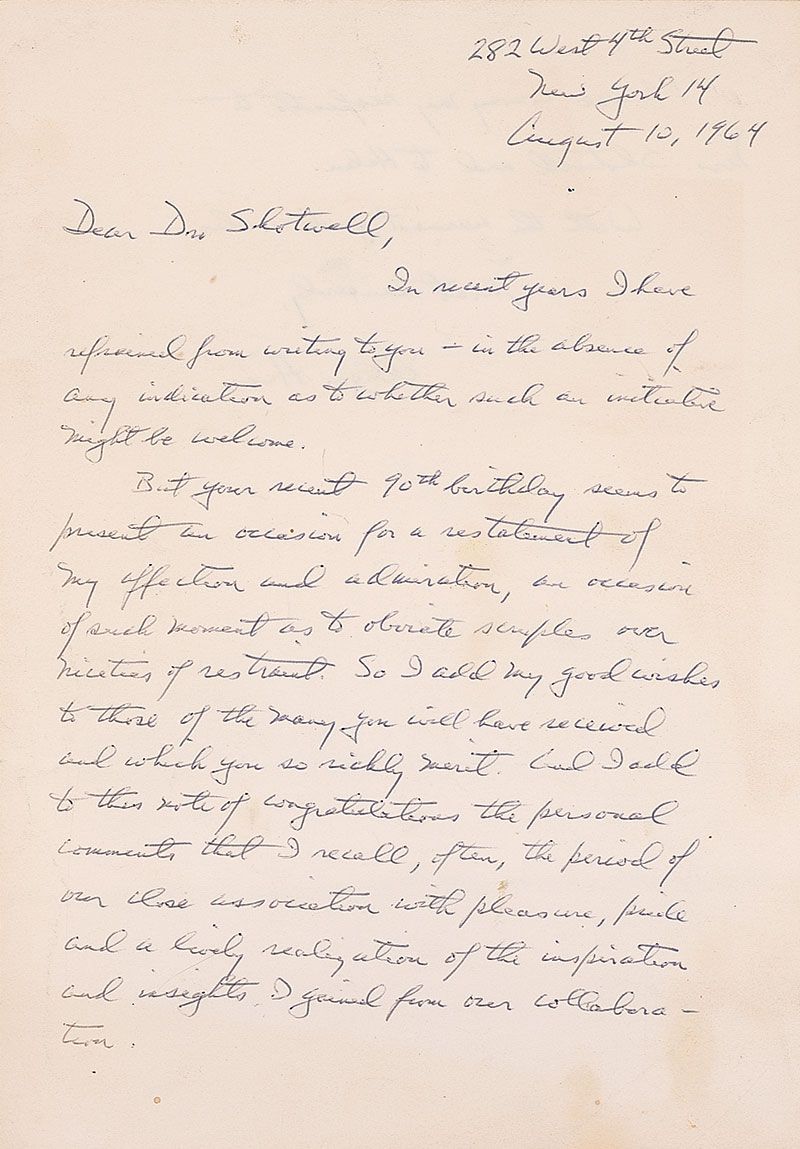 282 West 4th Street
New York 14
August 10, 1964
Dear Dr. Shotwell,
In recent years I have
refrained from writing to you – in the absence of
any indication as to whether such an initiative
might be welcome.
But your recent 90th birthday seems to
present an occasion for a restatement of
my affection and admiration, an occasion
of such moment as to obviate scruples over
niceties of restraint. So I add my good wishes
to those of the many you will have received
and which you so richly merit. And I add
to this note of congratulations the personal
comments that I recall, often, the period of
our close association with pleasure, pride
and a lively realization of the inspiration
and insights I gained from our collabora-
tion.